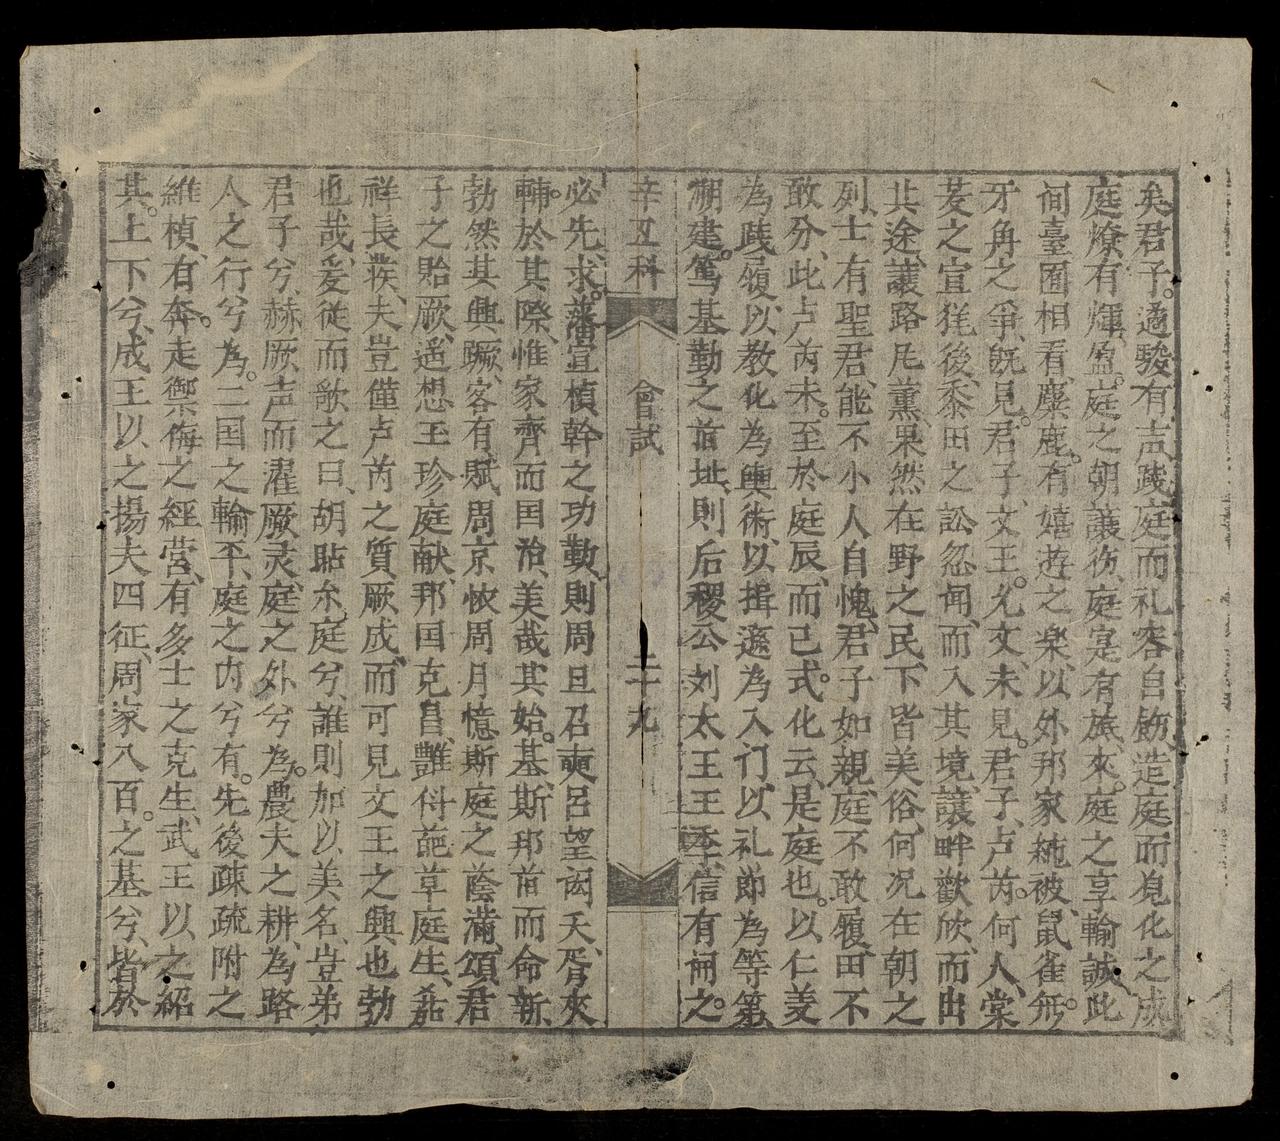 矣君子適駿有声践庭而礼容自飭造庭而覓化之成
庭燎有輝盈庭之朝讓伤庭寔有旅來庭之享輸誠此
间臺囿相看麋鹿有嬉遊之楽以外邦家純被鼠雀無
牙角之爭既見君子文王允文未見君子卢芮何人棠
茇之宣尨後黍田之訟忽闻而入其境讓畔歡欣而出
其途讓路凡薰果然在野之民下皆美俗何况在朝之
列士有聖君能不小人自愧君子如親庭不敢履田不
敢分此卢芮未至於庭辰而已式化云是庭也以仁羑
為踐履以教化為輿術以揖遜為入门以礼節為等第
溯建篤基勤之首址則后稷公刘太王王季信有祠之
辛丑科 會試 二十九
必先求藩宣楨幹之功勳則周旦召奭吕望闳夭胥夾
輔於其際惟家齊而国治美哉其始基斯邦首而命新
勃然其興蹶客有賦周京恢周月憶斯庭之蔭滿頌君
子之貽厥遥想王珍庭献邦囯克昌艷科葩草庭生茄
祥長裝夫豈僅卢芮之質厥成而可見文王之興也勃
也哉爰従而歌之曰胡貼尒庭兮誰則加以美名豈弟
君子兮赫厥声而濯厥灵庭之外兮為農夫之耕為路
人之行兮為二国之輸平庭之内兮有先後疎疏附之
維楨有奔走禦侮之經営有多士之克生武王以之紹
其上下兮成王以之揚夫四征周家八百之基兮皆於